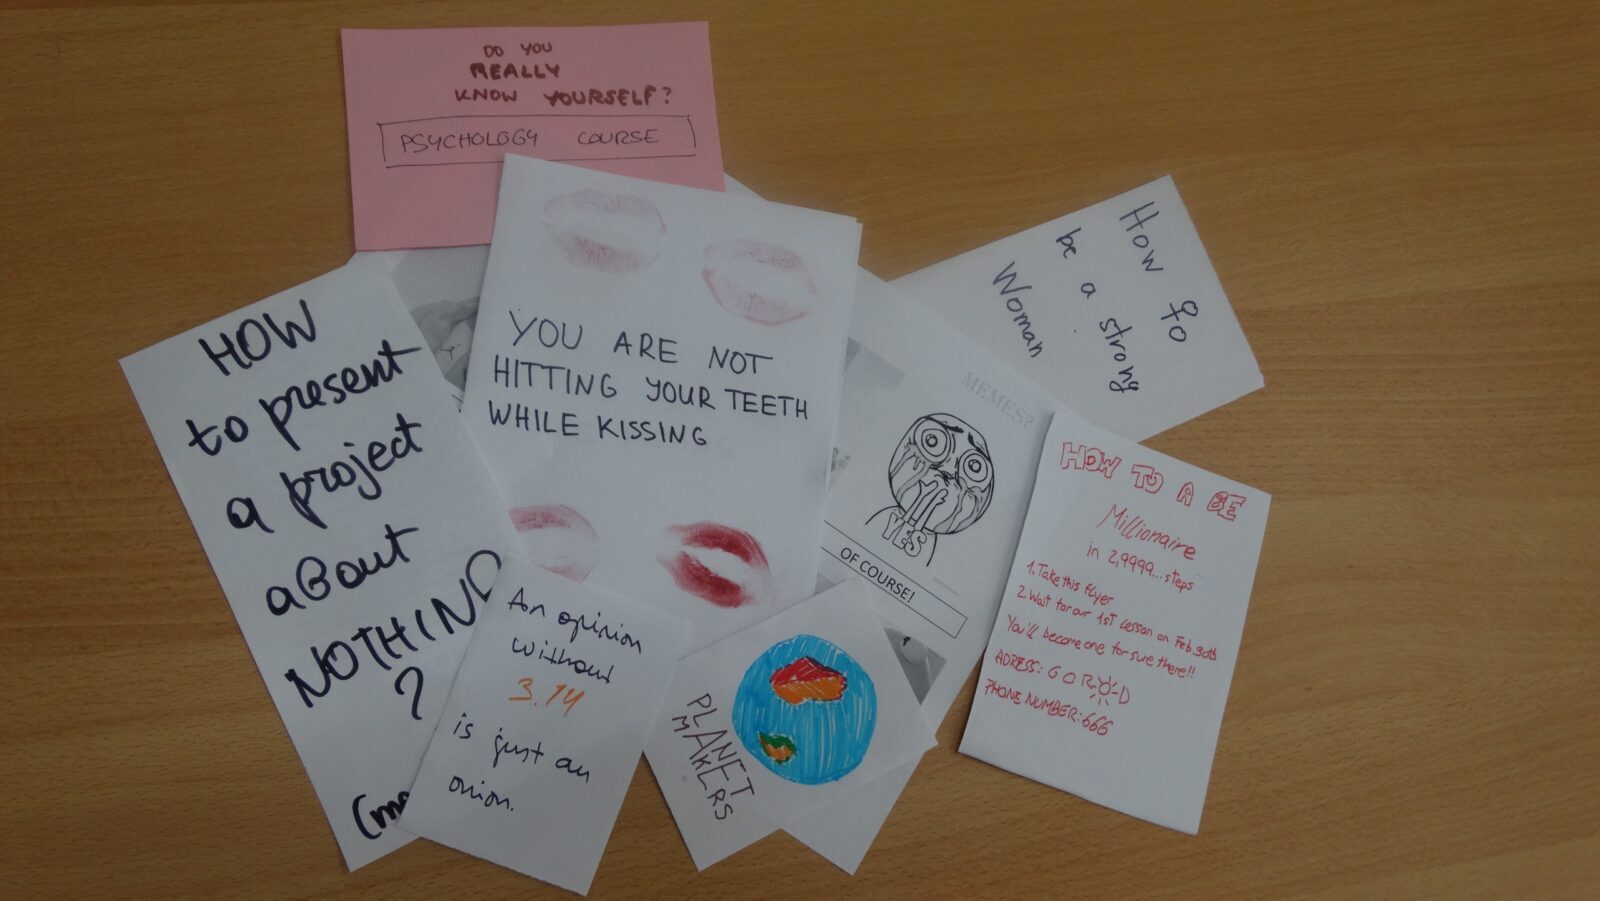 DO YOU
REALLY
KNOW YOURSELF?
PSYCHOLOGY COURSE
YOU ARE NOT
HITTING YOUR TEETH
WHILE KISSING
How to
be a strong
Woman
HOW
to present
a project
about
NOTHING
?
An opinion
without
3.14
is just an
onion.
PLANET
MAKERS
MEMES?
YES
OF COURSE!
HOW TO A BE
Millionaire
in 2,9999... steps
1. Take this flyer
2. Wait for our 1st lesson on Feb. 30th
You'll become one for sure there!!
ADRESS: GOROD
PHONE NUMBER: 666